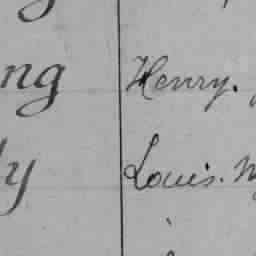 ng Henry.
y Louis.